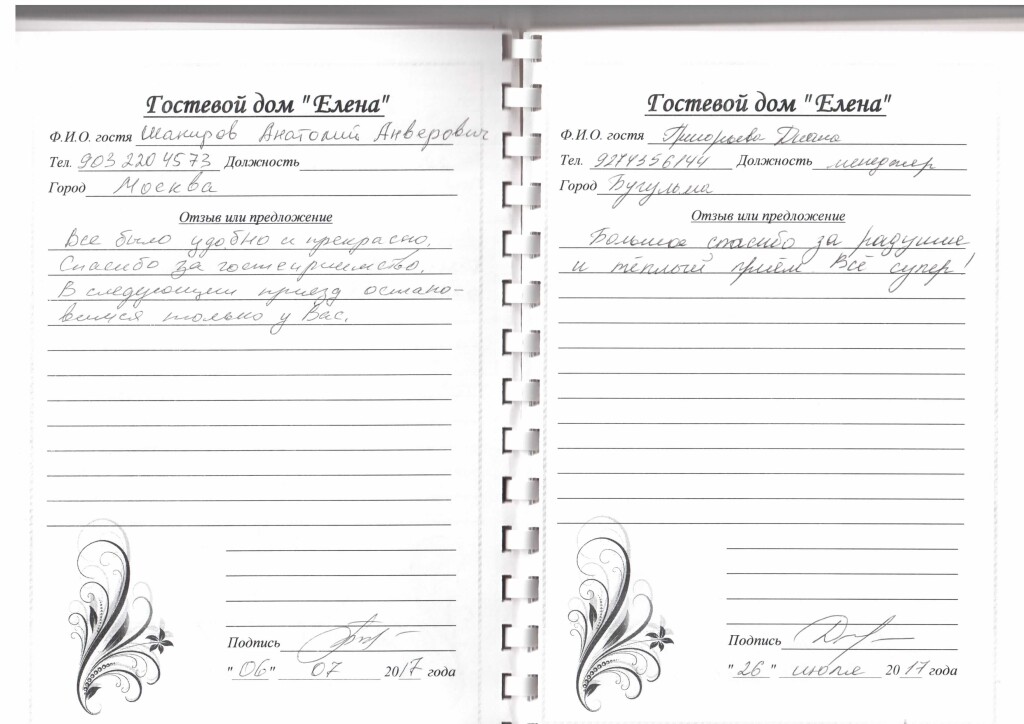 Гостевой дом "Елена"
Ф.И.О. гостя Шакиров Анатолий Анверович
Тел. 903 220 45 73 Должность
Город Москва
Отзыв или предложение
Все было удобно и прекрасно.
Спасибо за гостеприимство.
В следующий приезд остано-
вимся только у Вас.
Подпись
"06" 07 2017 года
Гостевой дом "Елена"
Ф.И.О. гостя Григорьева Диана
Тел. 9274356144 Должность менеджер
Город Бугульма
Отзыв или предложение
Большое спасибо за радушие
и тёплый приём. Всё супер!
Подпись
"26" июля 2017 года